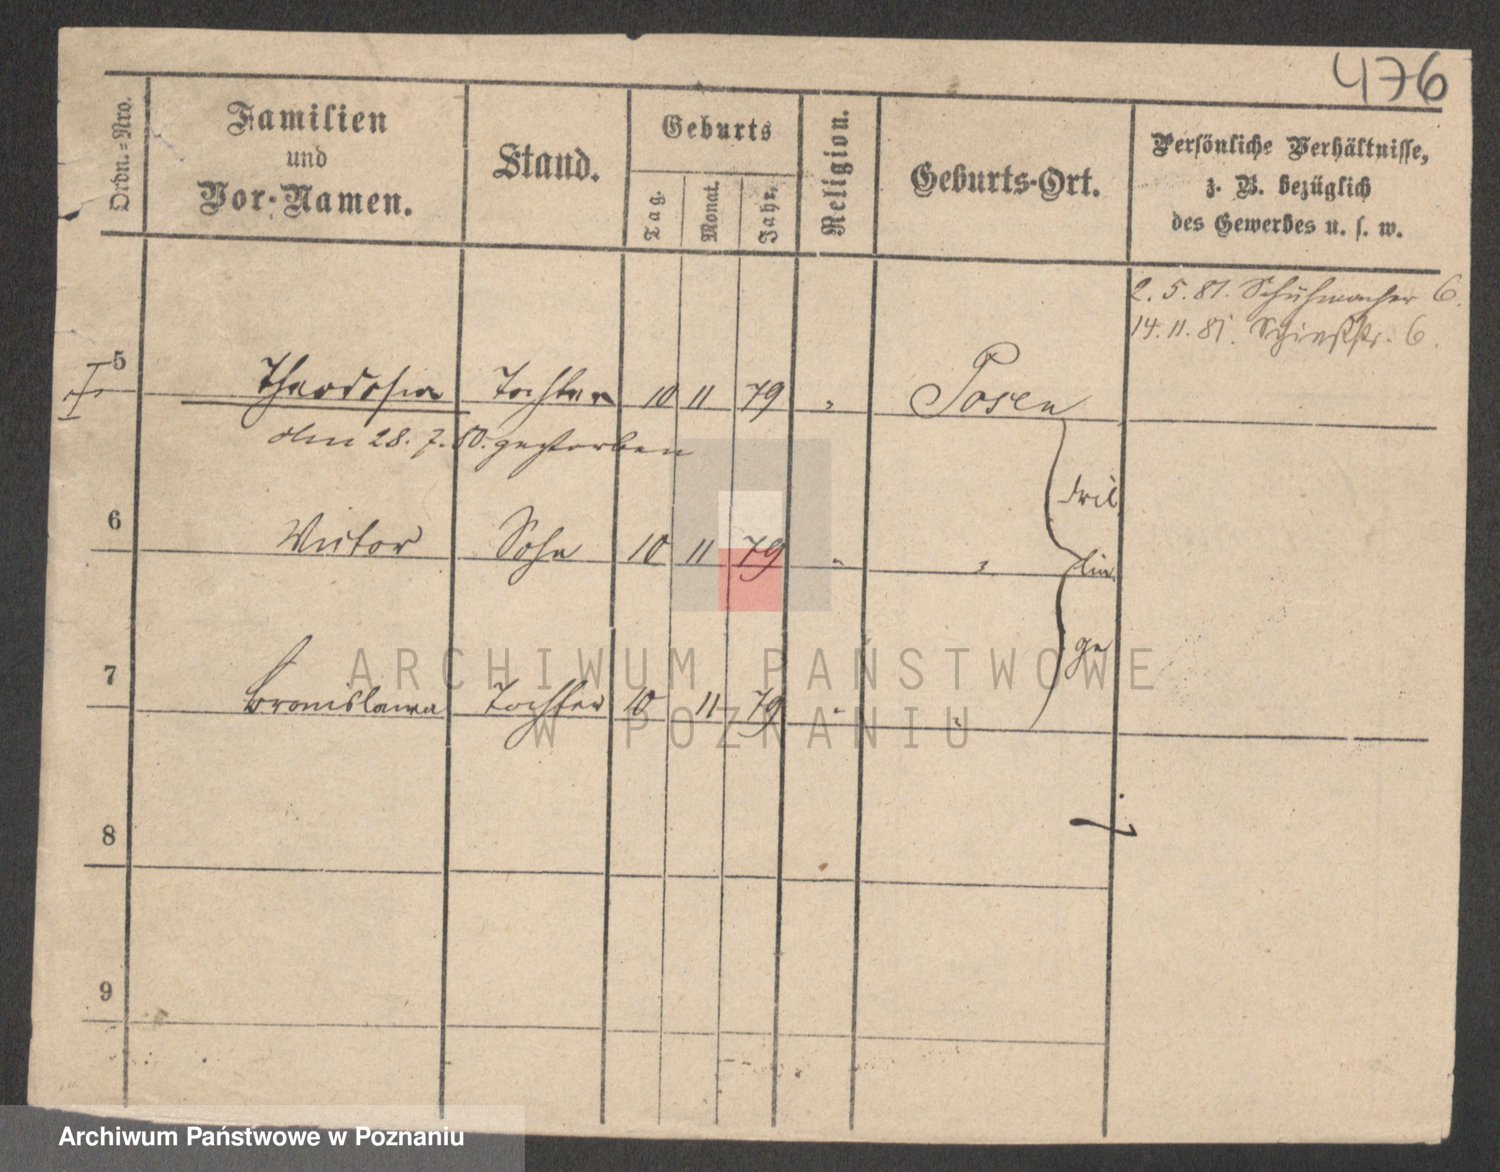 476
Ordn.=Nro.
Familien
und
Vor-Namen.
Stand.
Geburts
Tag.
Monat.
Jahr.
Religion.
Geburts-Ort.
Persönliche Verhältnisse,
z. B. bezüglich
des Gewerbes u. s. w.
2. 5. 81. Schuhmacher 6.
14. 11. 81. Schießstr. 6.
5 Theodosia Tochter 10 11 79 " Posen
am 28. 7. 80. gestorben
Dril
6 Victor Sohn 10 11 79 " "
lin
ge
7 Bronislawa Tochter 10 11 79 " "
8
9
ARCHIWUM PAŃSTWOWE
W POZNANIU
Archiwum Państwowe w Poznaniu